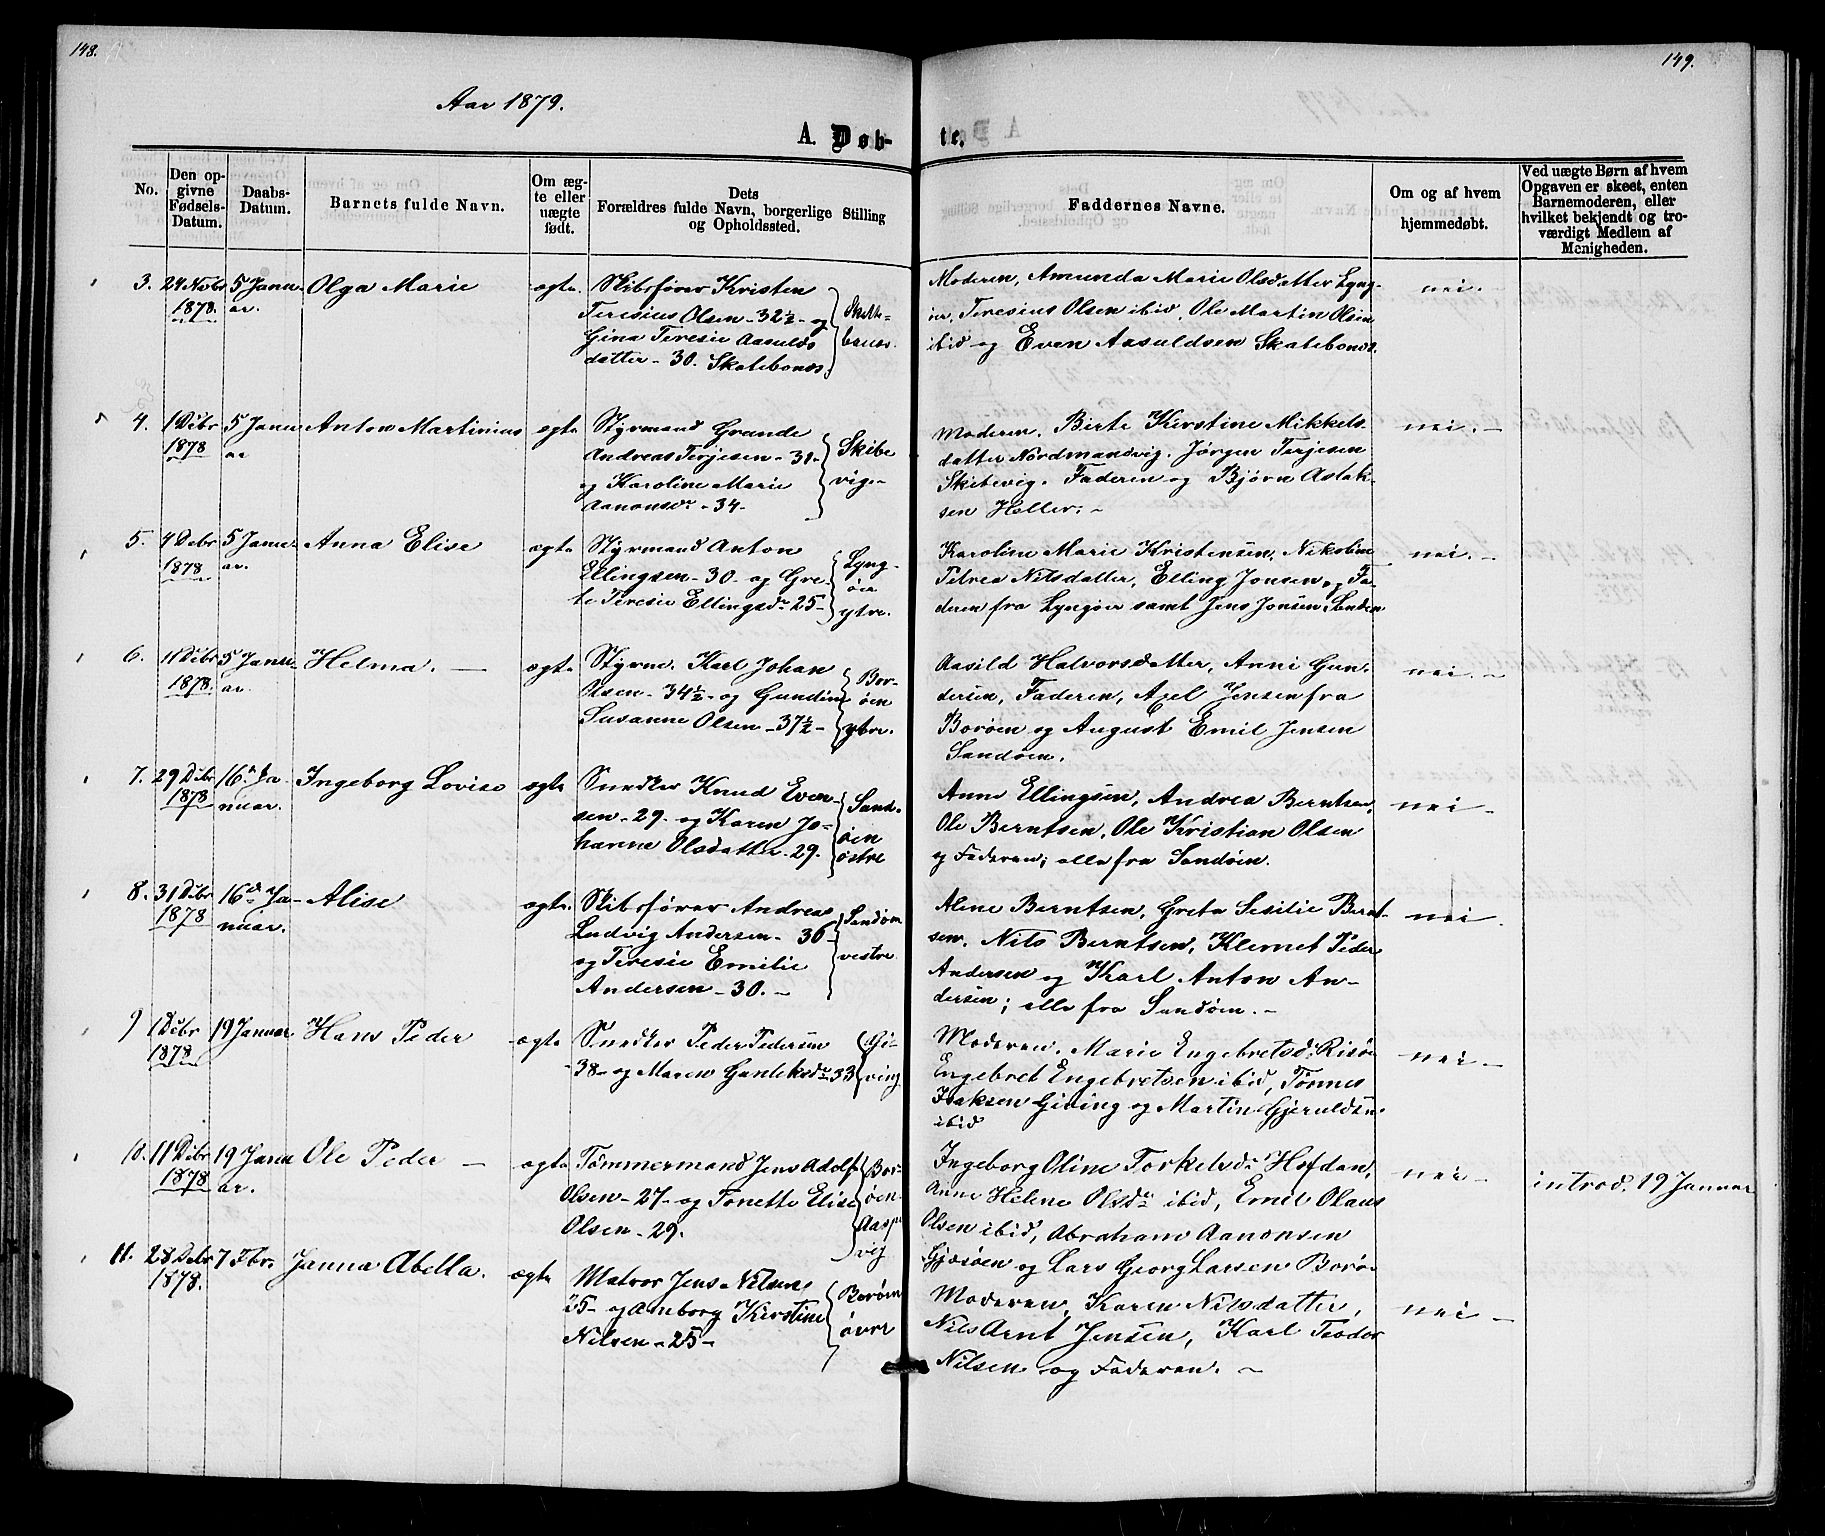 148.
149.
Aar 1879.
A. Døb-
te.
No.
Den op-
givne
Fødsels-
Datum.
Daabs-
Datum.
Barnets fulde Navn.
Om æg-
te eller
uægte
født.
Dets
Forældres fulde Navn, borgerlige Stilling
og Opholdssted.
Faddernes Navne.
Om og af hvem
hjemmedøbt.
Ved uægte Børn af hvem
Opgaven er skeet, enten
Barnemoderen, eller
hvilket bekjendt og tro-
værdigt Medlem af
Menigheden.
3. 24 Novbr 1878. 5 Janu-
ar.
Olga Marie
ægte.
Skibsfører Kristen
Teresius Olsen - 32½ - og
Gina Teresie Aasulds
datter - 30. Skatebones.
Moderen, Amunda Marie Olsdatter Lyng-
ør, Teresius Olsen ibid, Ole Martin Olsen
ibid og Even Aasuldsen Skatebones.
nei. -
4. 1 Dcbr 1878 5 Janu
ar
Anton Martinius
ægte
Styrmand Grunde
Andreas Terjesen - 31 -
og Karoline Marie
Aanonsdr - 34 -
Skibe
vig. -
Moderen, Birte Kirstine Mikkels-
datter Nordmandvig. Jørgen Terjesen
Skibevig. Faderen og Bjørn Aslak-
sen Holler; -
nei. -
5. 4 Debr 1878 5 Janu
ar.
Anna Elise
ægte
Styrmand Anton
Ellingsen - 30 - og Gre-
te Teresie Ellingsdr 25 -
Lyng-
øer
ytre.
Karoline Marie Kristensen, Nikoline
Petrea Nilsdatter, Elling Jonsen og Fa-
deren fra Lyngøer samt Jens Jonsen, Sanden
nei. -
6. 11 Dcbr 1878. 5 Janu-
ar.
Helma. -
ægte
Styrm. Karl Johan
Olsen - 34½ - og Gundine
Susanne Olsen - 37½ -
Bor-
øen
ytre.
Aasild Halvorsdatter, Anni Gun-
dersen, Faderen, Axel Jensen fra
Borøen og August Emil Jensen
Sandøen.
nei. -
7. 29 Dcbr 1878 16de Ja-
nuar.
Ingeborg Lovise
ægte
Snedker Knud Even-
sen - 29 - og Karen Jo-
hanne Olsdatter - 29.
Sand-
øen
østre
Anne Ellingsen, Andrea Berntsen,
Ole Berntsen, Ole Kristian Olsen
og Faderen; alle fra Sandøen.
nei -
8. 31 Dcbr 1878 16de Ja-
nuar.
Alise
ægte.
Skibsfører Andreas
Ludvig Andersen - 36 -
og Teresie Emilie
Andersen - 30. -
Sandøen
vestre
Alene Berntsen, Grete Sesilie Bernt-
sen, Nils Berntsen, Klemet Peder
Andersen og Karl Anton An-
dersen; alle fra Sandøen. -
nei.
9 1 Dcbr 1878 19 Januar
Hans Peder
ægte
Snedker Peder Pedersen
- 38 - og Maren Gunteksdr 33
Gi-
ving
Moderen. Marie Engebretsd: Risør
Engebret Engebretsen ibid, Tønnes
Isaksen Giving og Martin Gjeruldsen
ibid
nei. -
10. 11 Dcbr 1878 19 Janu
ar.
Ole Peder -
ægte
Tømmermand Jens Adolf
Olsen - 27 - og Tonette Elise
Olsen - 29.
Bor-
øen-
Aasp
vig
Ingeborg Oline Torkelsdr Hofdan,
Anne Helene Olsdr ibid, Emil Olaus
Olsen ibid, Abraham Aanonsen
Gjæsøen og Lars Georg Larsen Borø-
nei -
introd. 19 Januar
11. 28 Debr 1878. 7 Fbr.
Janna Abella.
ægte
Matros Jens Nilsen
25 - og Anborg Kirstine
Nilsen - 25 -
Borøen
øvre
Moderen, Karen Nilsdatter,
Nils Arnt Jensen, Karl Teodor
Nilsen og Faderen. -
nei -